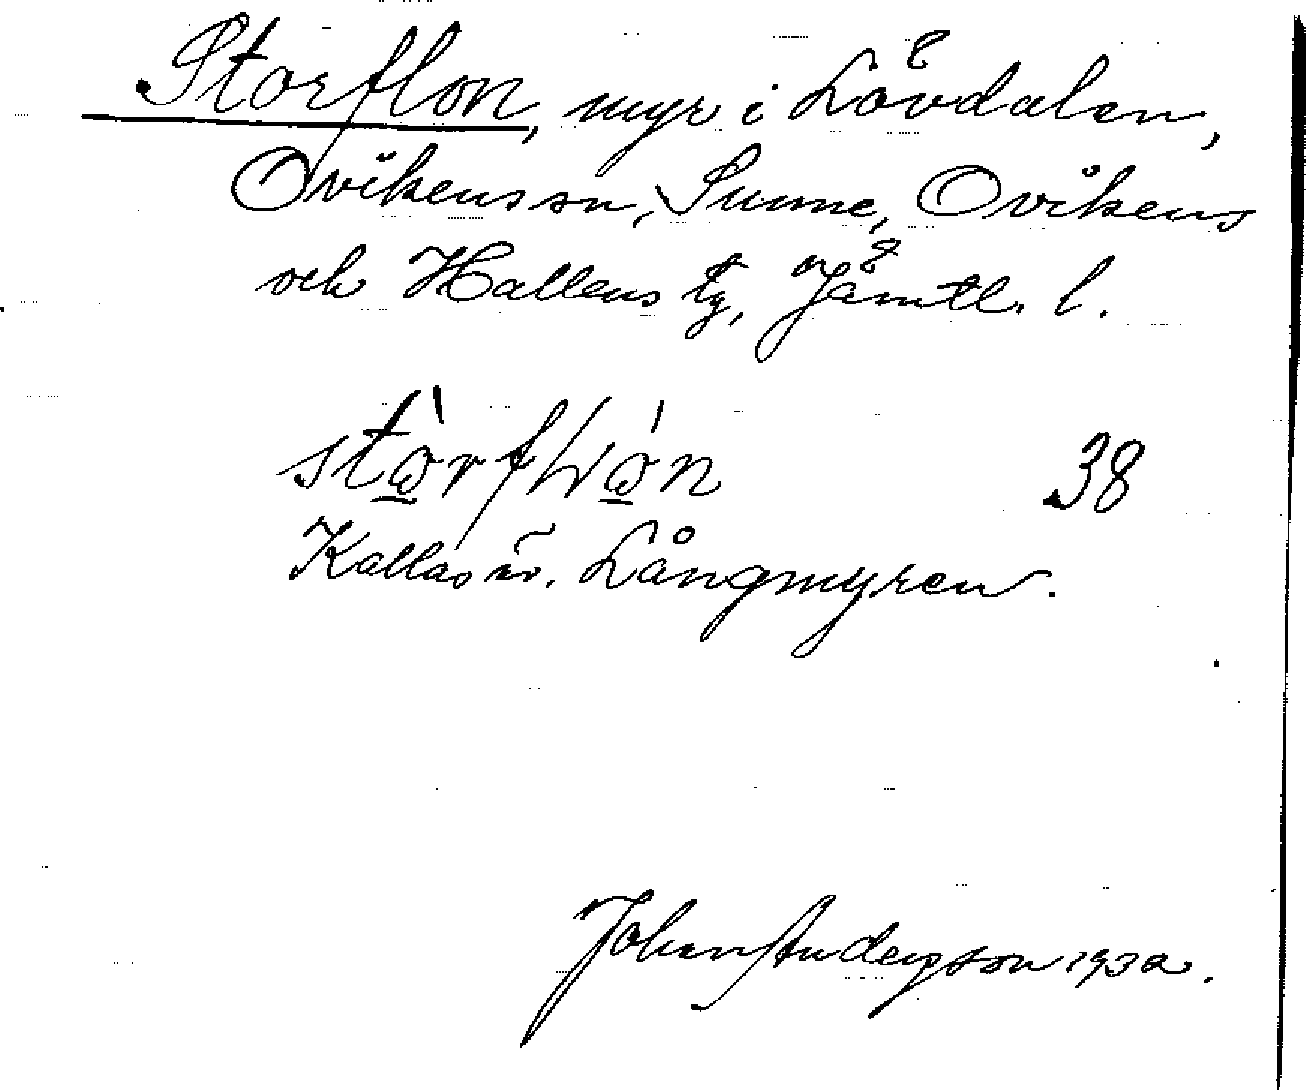 Storflon, myr i Lövdalen,
Ovikens sn, Sunne, Ovikens
och Hallens tg, Jämtl. l.
38
Kallas äv. Långmyren.
Johan Anderson 1932.